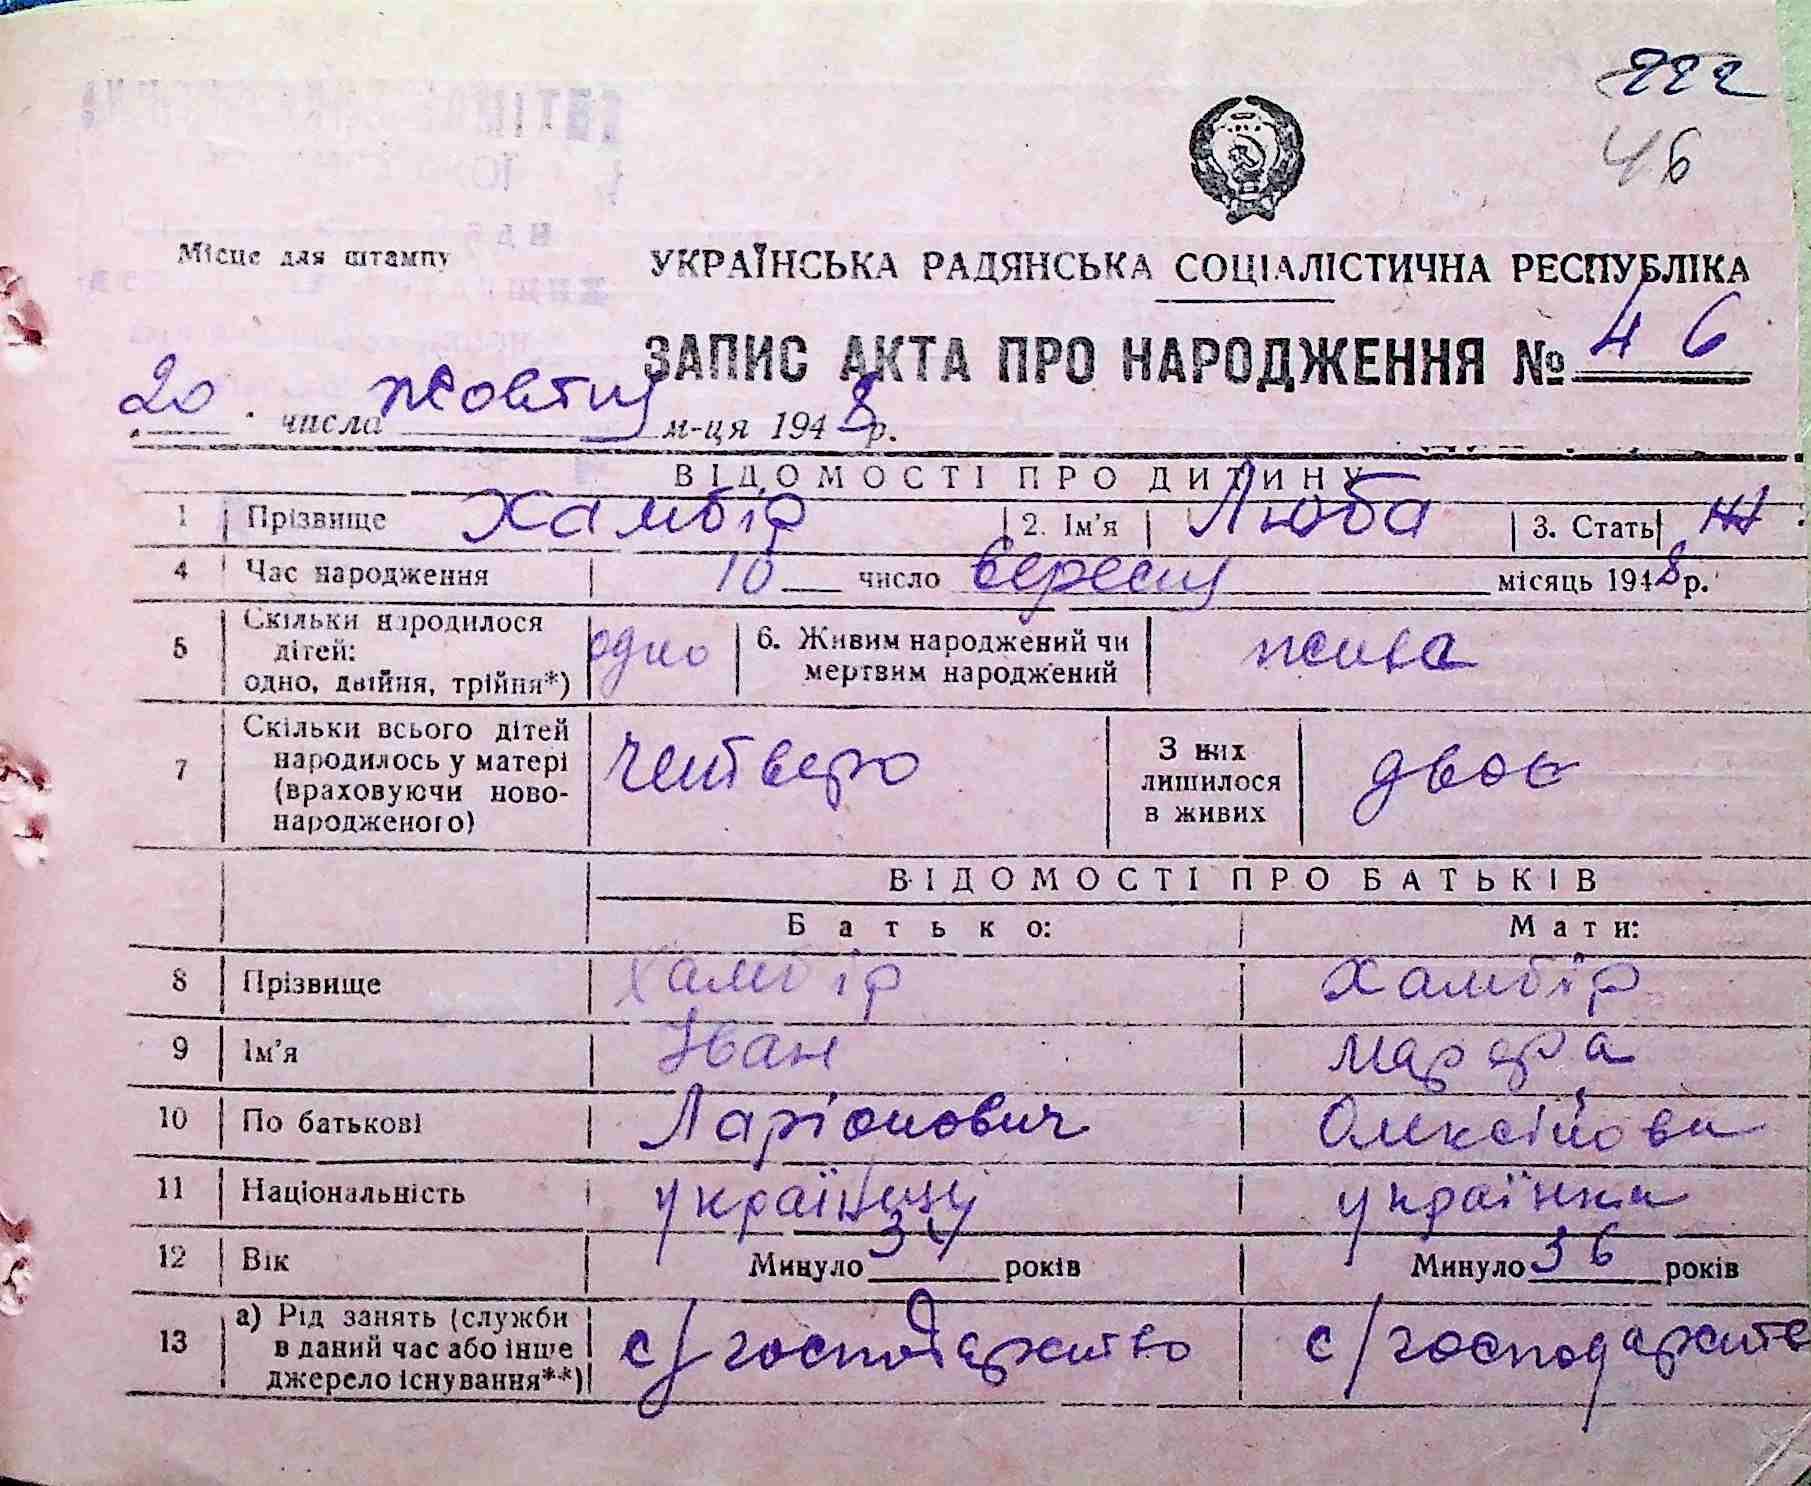 222
46
Місце для штампу
УКРАЇНСЬКА РАДЯНСЬКА СОЦІАЛІСТИЧНА РЕСПУБЛІКА
ЗАПИС АКТА ПРО НАРОДЖЕННЯ № 46
20 числа жовтня м-ця 1948 р.
ВІДОМОСТІ ПРО ДИТИНУ
1 Прізвище Хамбір 2. Ім'я Люба 3. Стать ж
4 Час народження 10 число вересня місяць 1948 р.
5 Скільки народилося дітей: одно, двійня, трійня*) одно 6. Живим народжений чи мертвим народжений жива
7 Скільки всього дітей народилось у матері (враховуючи ново-народженого) четверо З них лишилося в живих двоє
ВІДОМОСТІ ПРО БАТЬКІВ
Батько: Мати:
8 Прізвище Хамбір Хамбір
9 Ім'я Іван Марфа
10 По батькові Ларіонович Олексіївна
11 Національність українці українка
12 Вік Минуло 34 років Минуло 36 років
13 а) Рід занять (служби в даний час або інше джерело існування**) с/господарство с/господарство